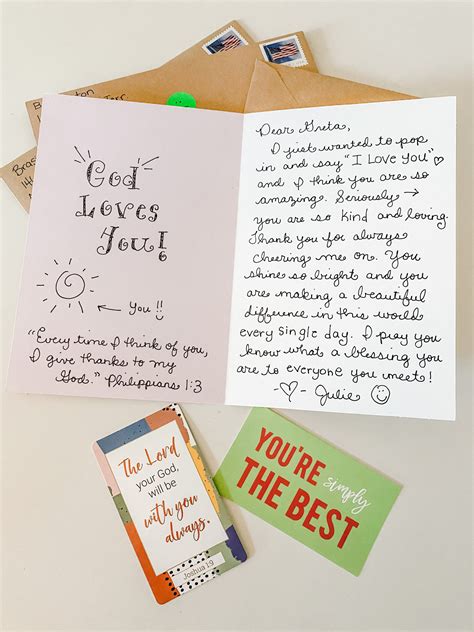 God
Loves
You!
You !!
"Every time I think of you,
I give thanks to my
God." Philippians 1:3
Dear Greta,
I just wanted to pop
in and say "I Love You" ♡
and I think you are so
amazing. Seriously →
you are so kind and loving.
Thank you for always
cheering me on. You
shine so bright and you
are making a beautiful
difference in this world
every single day. I pray you
know what a blessing you
are to everyone you meet!
-♡- Julie ☺
The Lord
your God,
will be
with you
always.
Joshua 1:9
YOU'RE
simply
THE BEST